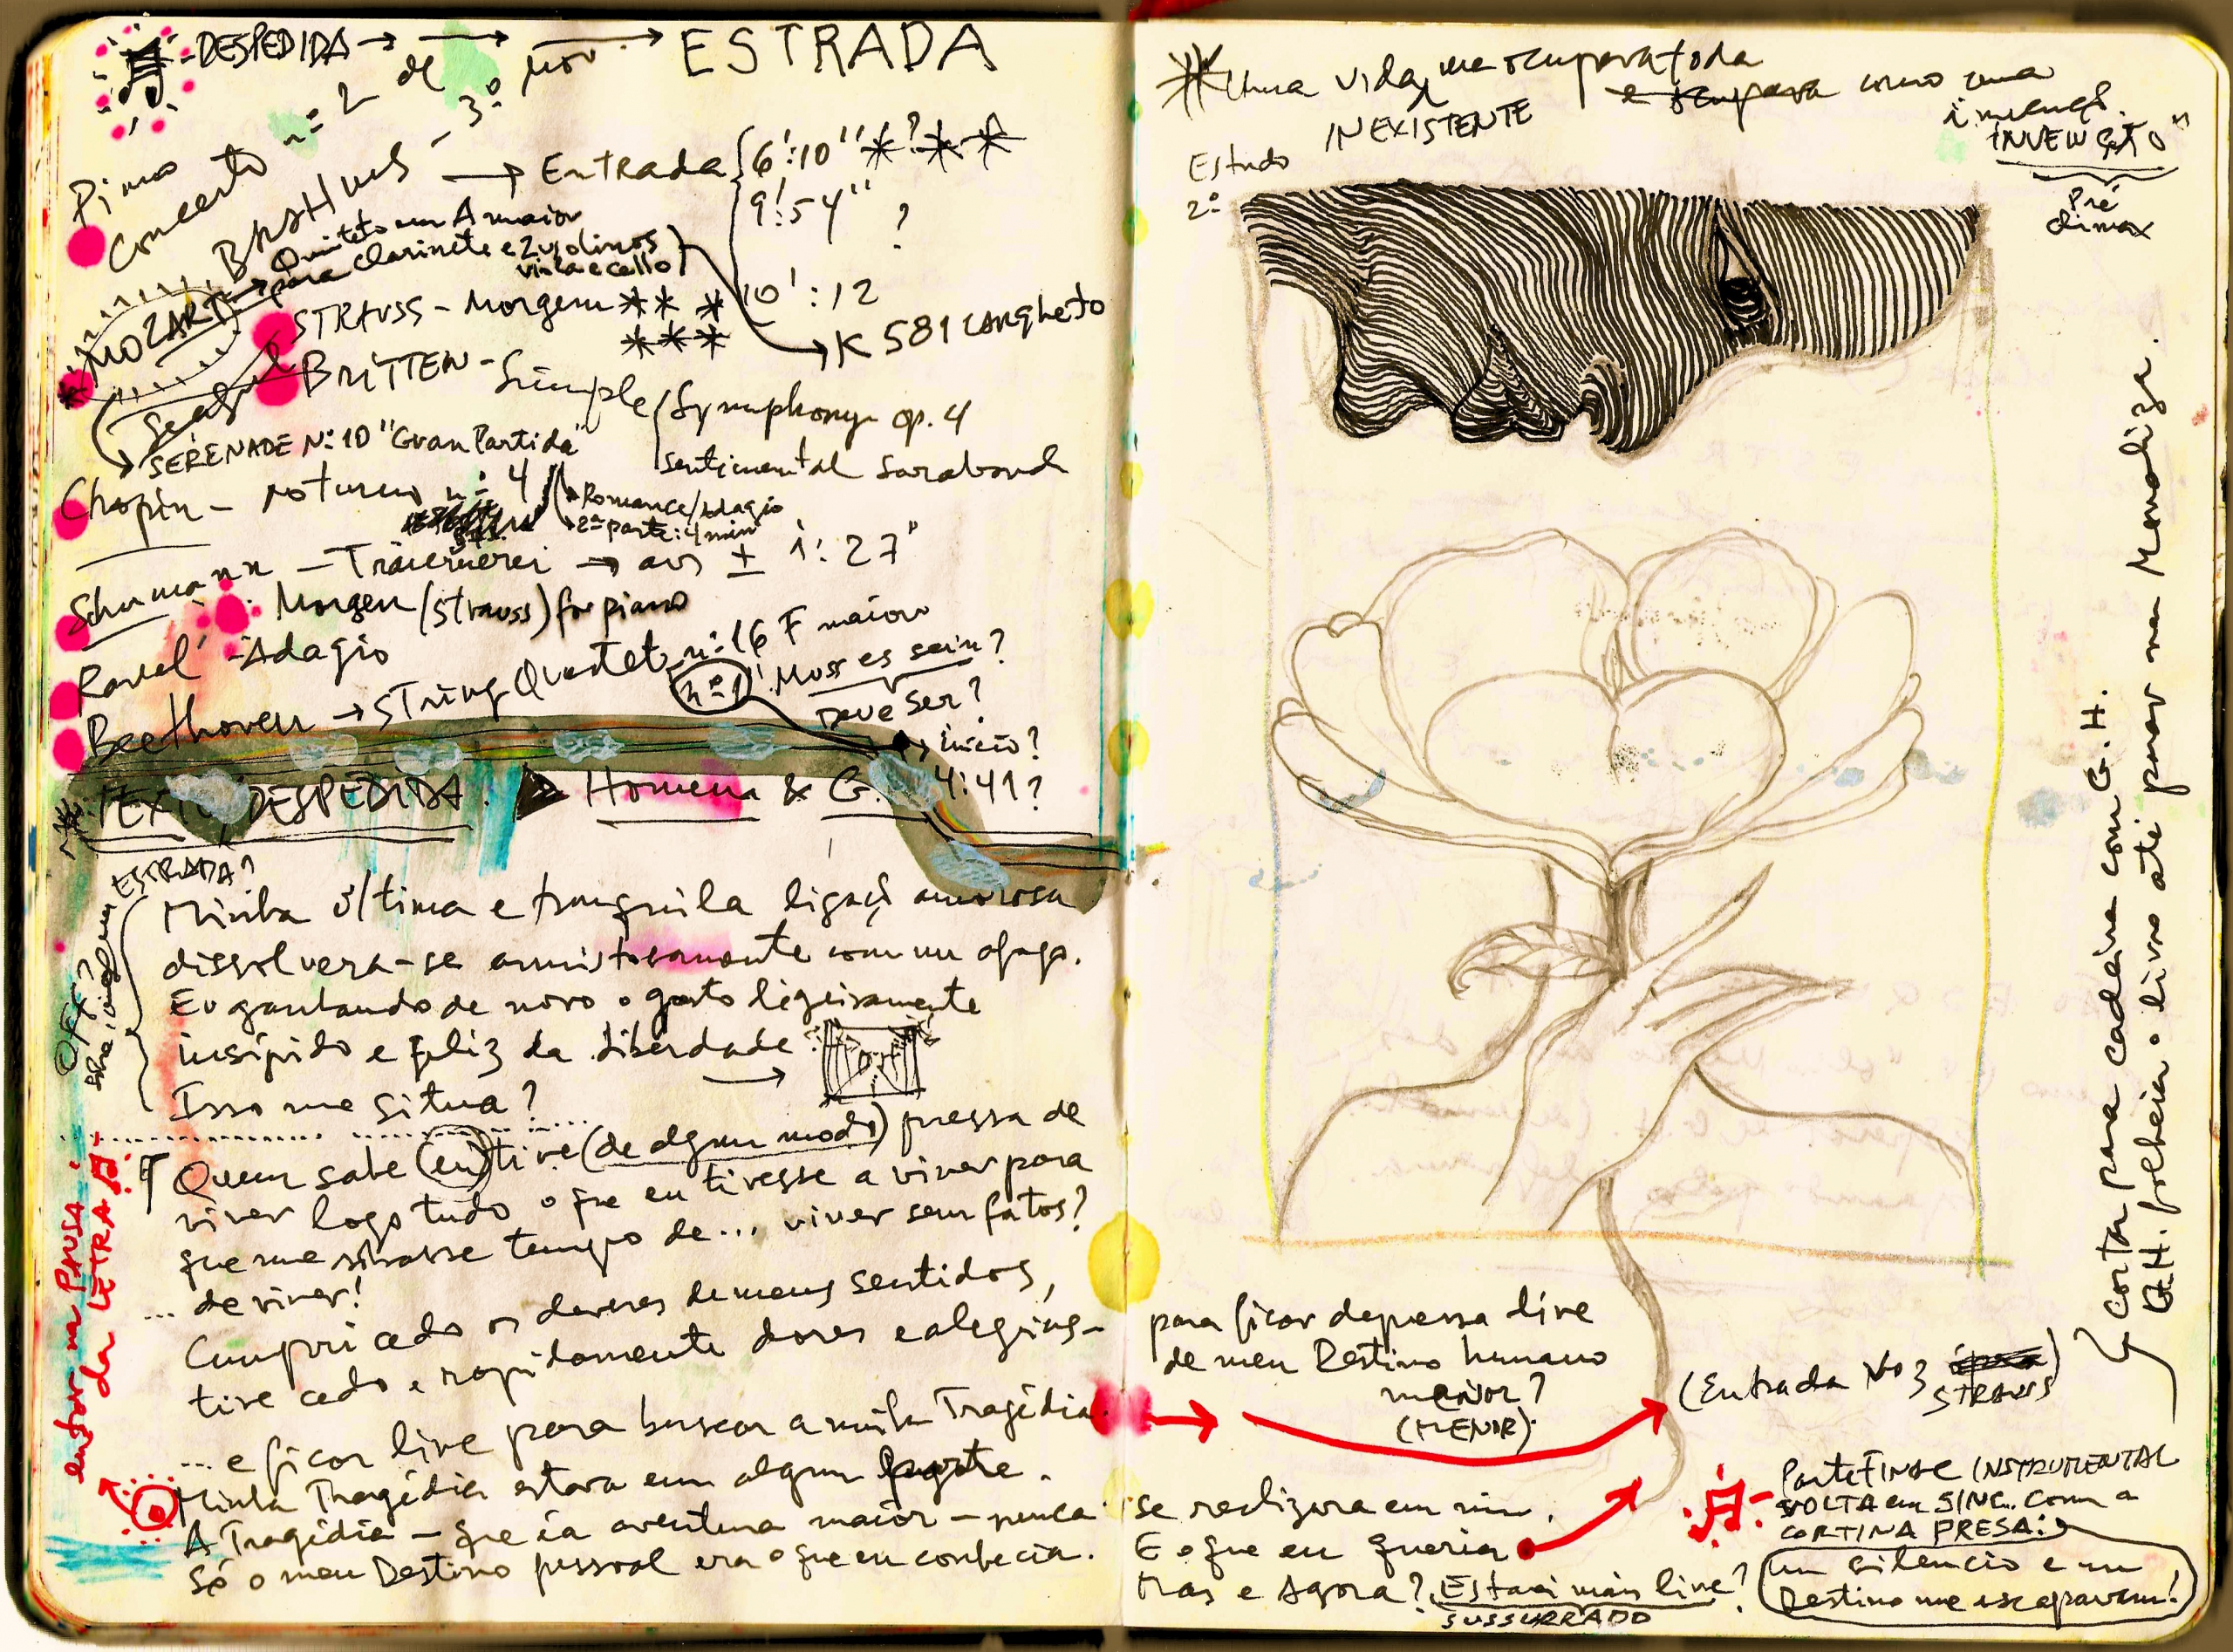 DESPEDIDA → → → ESTRADA
Piano
Concerto nº 2 de
BRAHMS - 3º mov. → Entrada { 6':10" * ? * *
9':54" ?
10':12
MOZART → Quinteto em A maior
para clarinete e 2 violinos
viola e cello → K 581 Largheto
STRAUSS - Morgen ** *
***
BRITTEN - Simple { Symphony op. 4
Sentimental Saraband
SERENADE Nº 10 "Gran Partida"
Romance/Adagio
2ª parte: 4 min
Chopin - Noturno nº 4
Schumann - Träumerei → aos ± 1:27"
Morgen (Strauss) for piano
Ravel - Adagio
Beethoven → String Quartet nº 16 F maior
nº 1
"Muss es sein?
Deve ser?
→ início?
4:41?
TEXTO, DESPEDIDA. Homem & G.
ESTRADA?
OFF?
Minha última e tranquila ligaçã amorosa
dissolvera-se amistosamente com um afago.
Eu ganhando de novo o gosto ligeiramente
insípido e feliz da liberdade.
→
Isso me situa?
Quem sabe (eu) tive (de algum modo) pressa de
viver logo tudo o que eu tivesse a viver para
que me sobrasse tempo de... viver sem fatos?
... de viver!
Cumpri cedo os deveres de meus sentidos,
tive cedo e rapidamente dores e alegrias -
... e ficar livre para buscar a minha Tragédia.
Minha Tragédia estava em algum parte.
A Tragédia - que é a aventura maior - nunca
Só o meu Destino pessoal era o que eu conhecia.
entrar na PAUSA
da LETRA
* Uma vida me ocupara toda
INEXISTENTE
e ocupava como uma
invençã.
INVENÇÃO"
Pré
climax
Estudo
2º
Cortar para cadeira com G.H.
G.H. folheia o livro até parar na Monaliza.
para ficar depressa livre
de meu Destino humano
menor?
(MENOR).
(Entrada Nº 3
STRAUSS)
se realizara em mim.
E o que eu queria
Mas e Agora? Estarei mais livre?
SUSSURRADO
Parte FINAL INSTRUMENTAL
VOLTA em SINC. com a
CORTINA PRESA:
um silencio e um
Destino me escapavam!